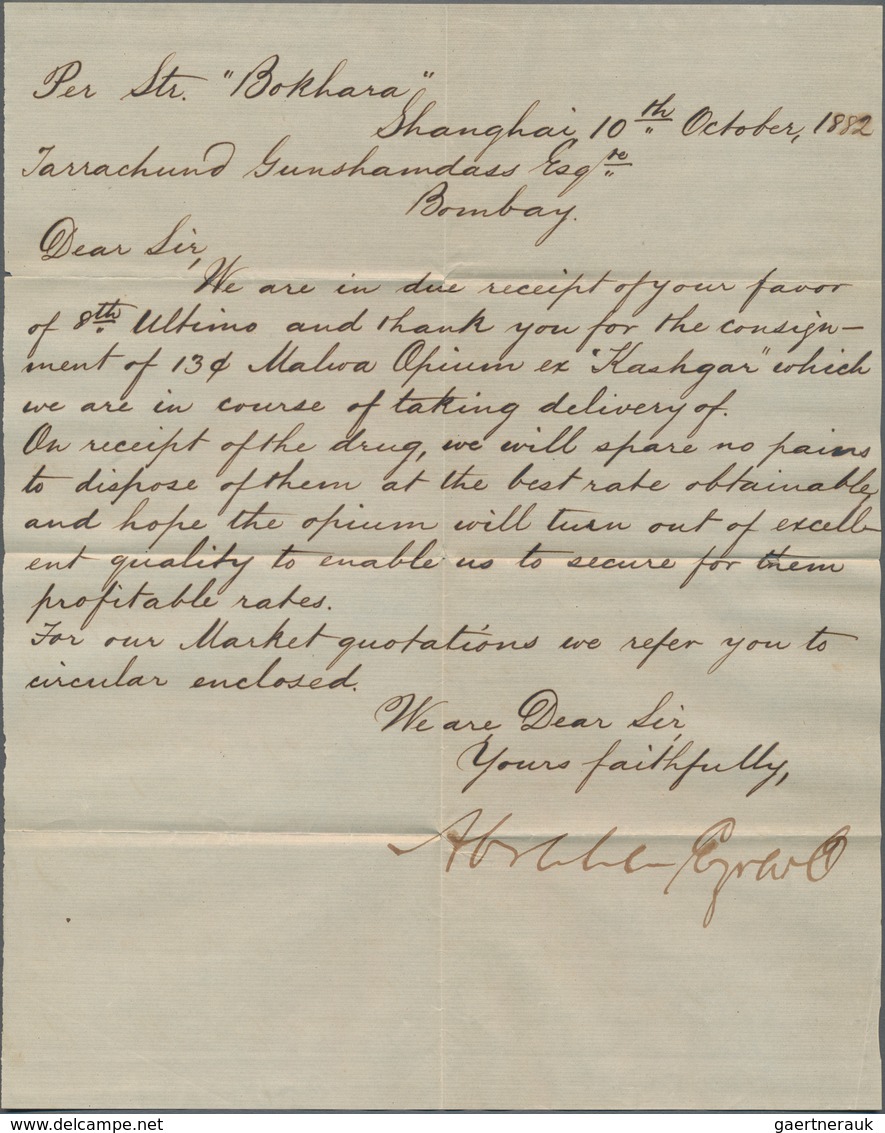 Per Str. "Bokhara"
Shanghai, 10th October, 1882
Tarrachund Gunshamdass Esqre
Bombay.
Dear Sir,
We are in due receipt of your favor
of 8th Ultimo and thank you for the consign-
ment of 13¢ Malwa Opium ex "Kashgar" which
we are in course of taking delivery of.
On receipt of the drug, we will spare no pains
to dispose of them at the best rate obtainable,
and hope the opium will turn out of excell-
ent quality to enable us to secure for them
profitable rates.
For our Market quotations we refer you to
circular enclosed.
We are, Dear Sir,
Yours faithfully,
delcampe.net
gaertnerauk